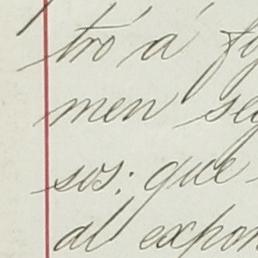 tró á
men se
sos: que
al expon